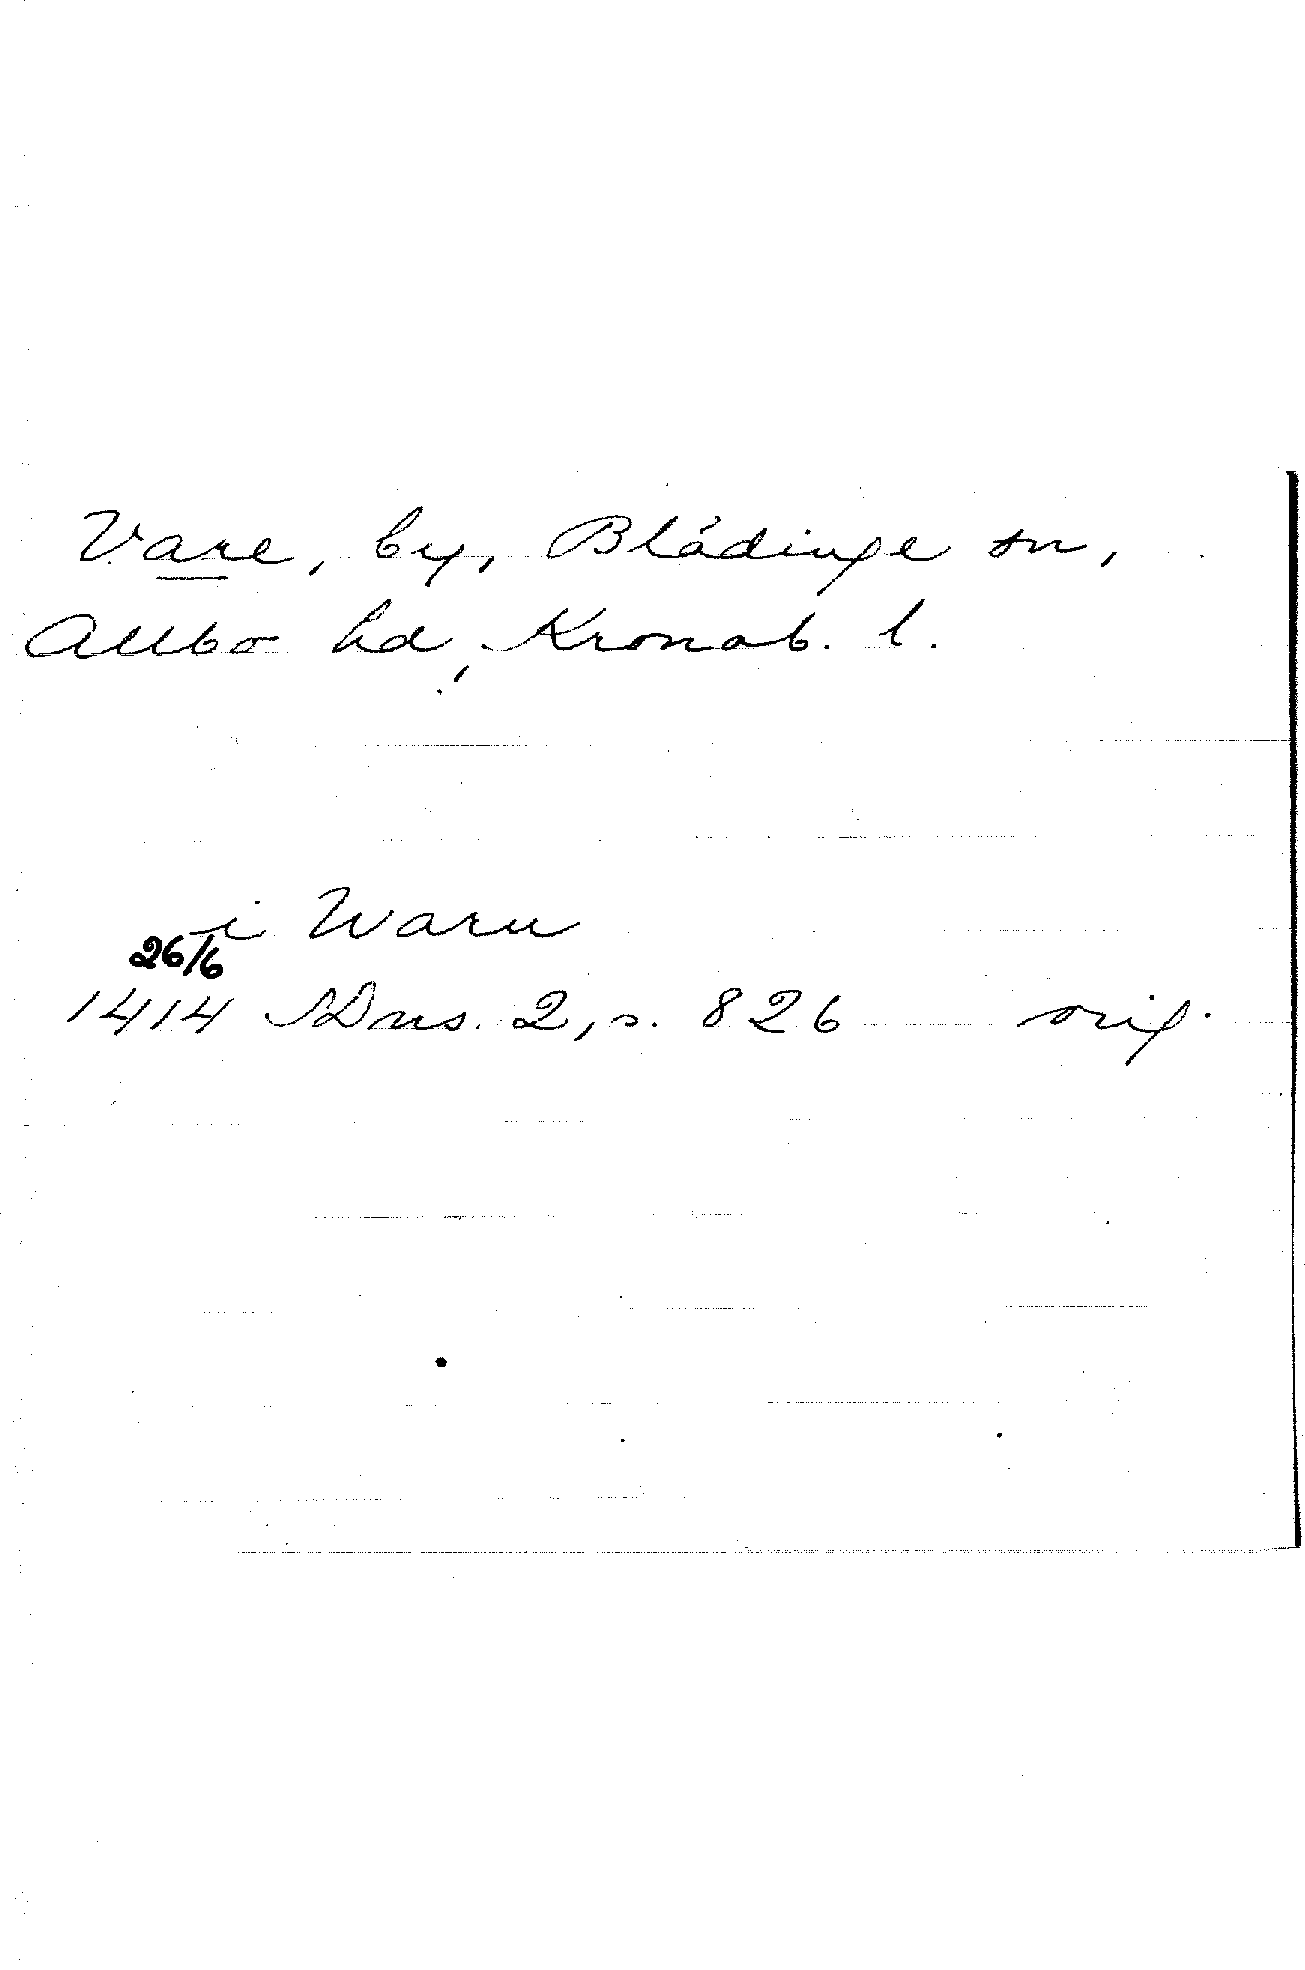 Vare, by, Blädinge sn,
Allbo hd, Kronob. l.
i Waru
26/6
1414 SDns. 2, s. 826 orig.